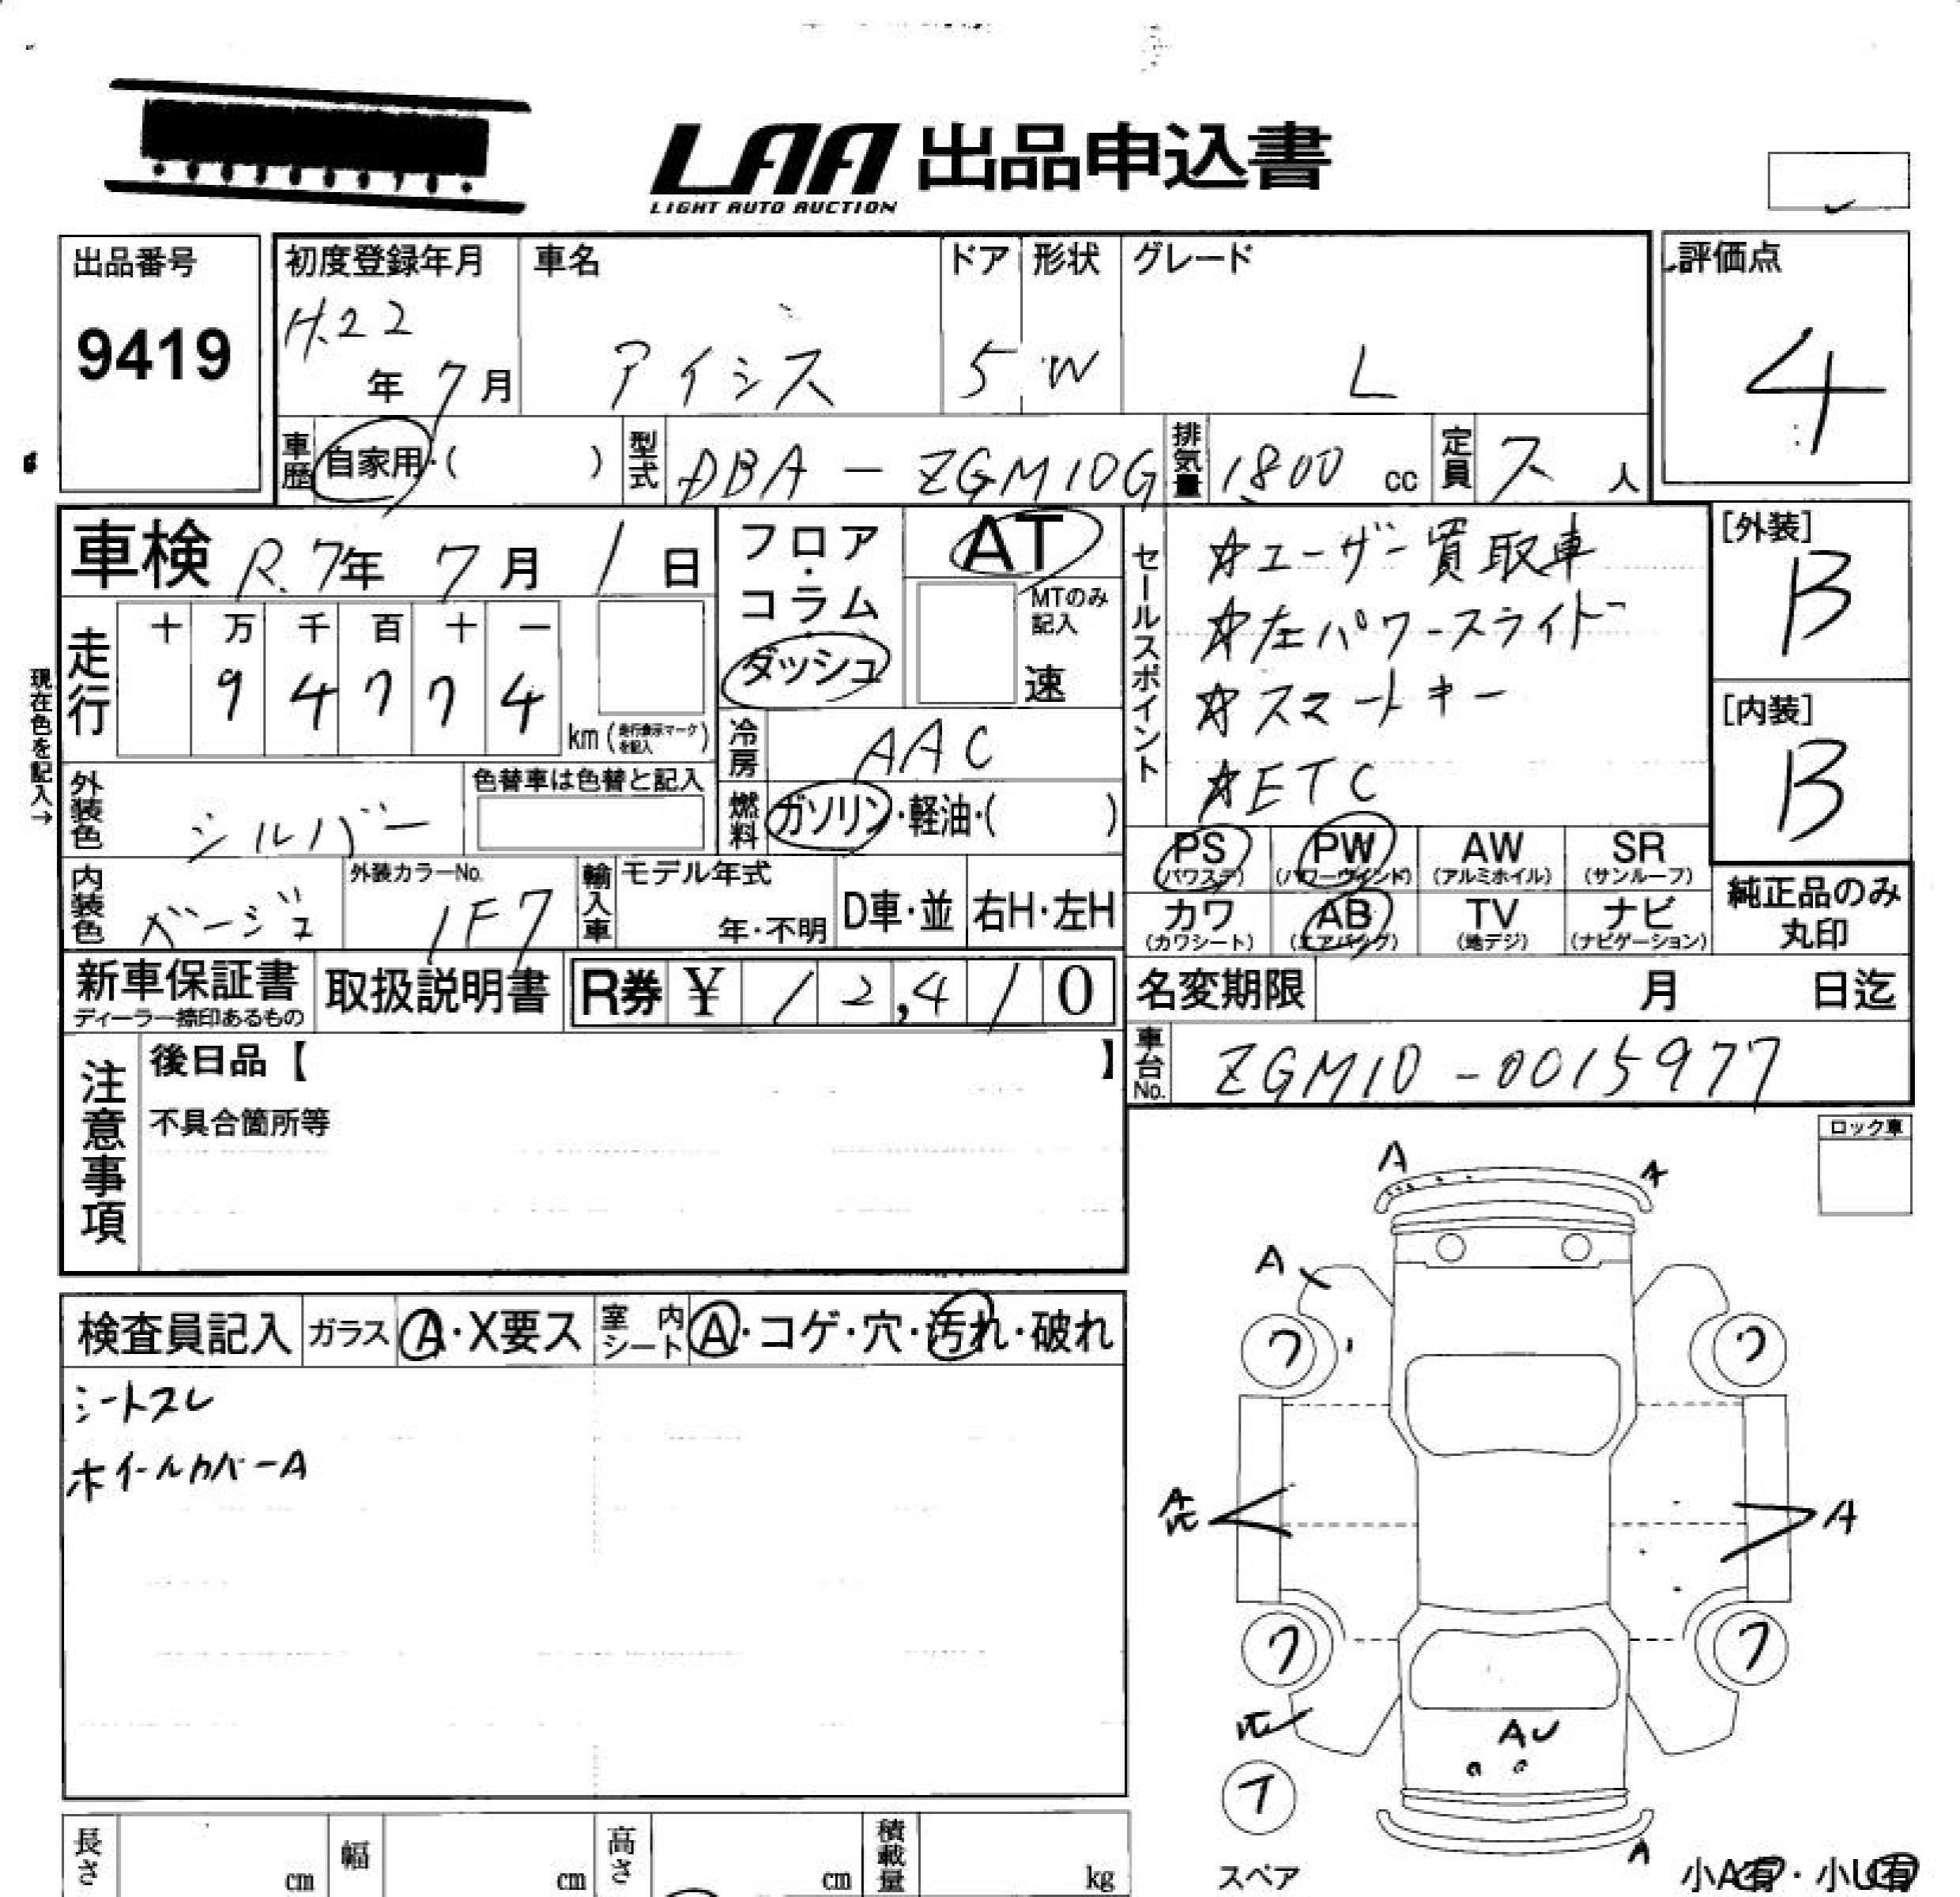 LAA 出品申込書
LIGHT AUTO AUCTION
出品番号
9419
初度登録年月
H.22
年 7 月
車名
アイシス
ドア
5
形状
W
グレード
L
評価点
4
車歴 自家用・( )
型式 DBA - ZGM10G
排気量 1800 cc
定員 7 人
車検 R.7年 7月 1日
走行
十 万 千 百 十 一
9 4 7 7 4
km (走行表示マークを記入)
現在色を記入→
フロア・コラム
ダッシュ
AT
MTのみ記入
速
冷房 AAC
燃料 ガソリン・軽油・( )
セールスポイント
☆ユーザー買取車
☆左パワースライド
☆スマートキー
☆ETC
[外装]
B
[内装]
B
外装色 シルバー
色替車は色替と記入
内装色 ベージュ
外装カラーNo.
1F7
輸入車
モデル年式
年・不明
D車・並
右H・左H
PS (パワステ)
PW (パワーウインド)
AW (アルミホイル)
SR (サンルーフ)
カワ (カワシート)
AB (エアバッグ)
TV (地デジ)
ナビ (ナビゲーション)
純正品のみ
丸印
新車保証書
ディーラー捺印あるもの
取扱説明書
R券 ¥ 12,410
名変期限 月 日迄
車台No. ZGM10-0015977
注意事項
後日品【 】
不具合箇所等
ロック車
検査員記入 ガラス A・X要ス 室内シート A・コゲ・穴・汚れ・破れ
シートスレ
ホイールカバーA
A
A
A
フ
フ
A
A
フ
フ
AU
T
スペア
A
小A有・小U有
長さ cm 幅 cm 高さ cm 積載量 kg